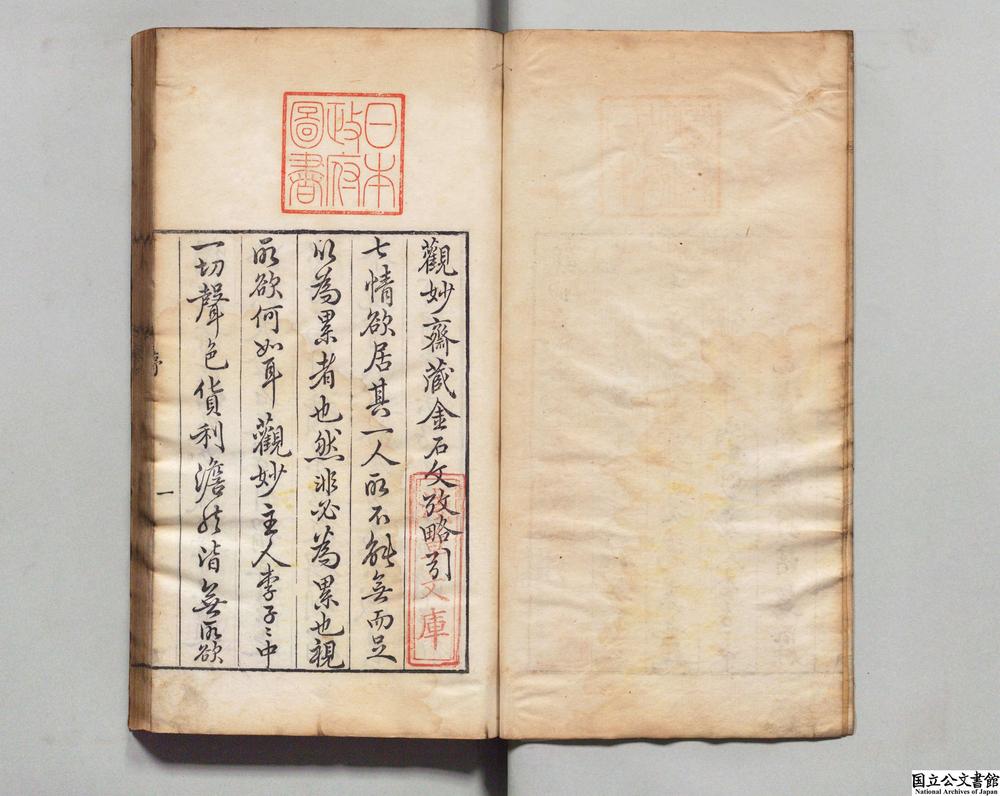 日本
政府
圖書
觀妙齋藏金石文攷略引
七情欲居其一人所不能無而足
以為累者也然非必為累也視
所欲何如耳觀妙主人李子〻中
一切聲色貨利澹然皆無所欲
序
一
文庫
国立公文書館
National Archives of Japan